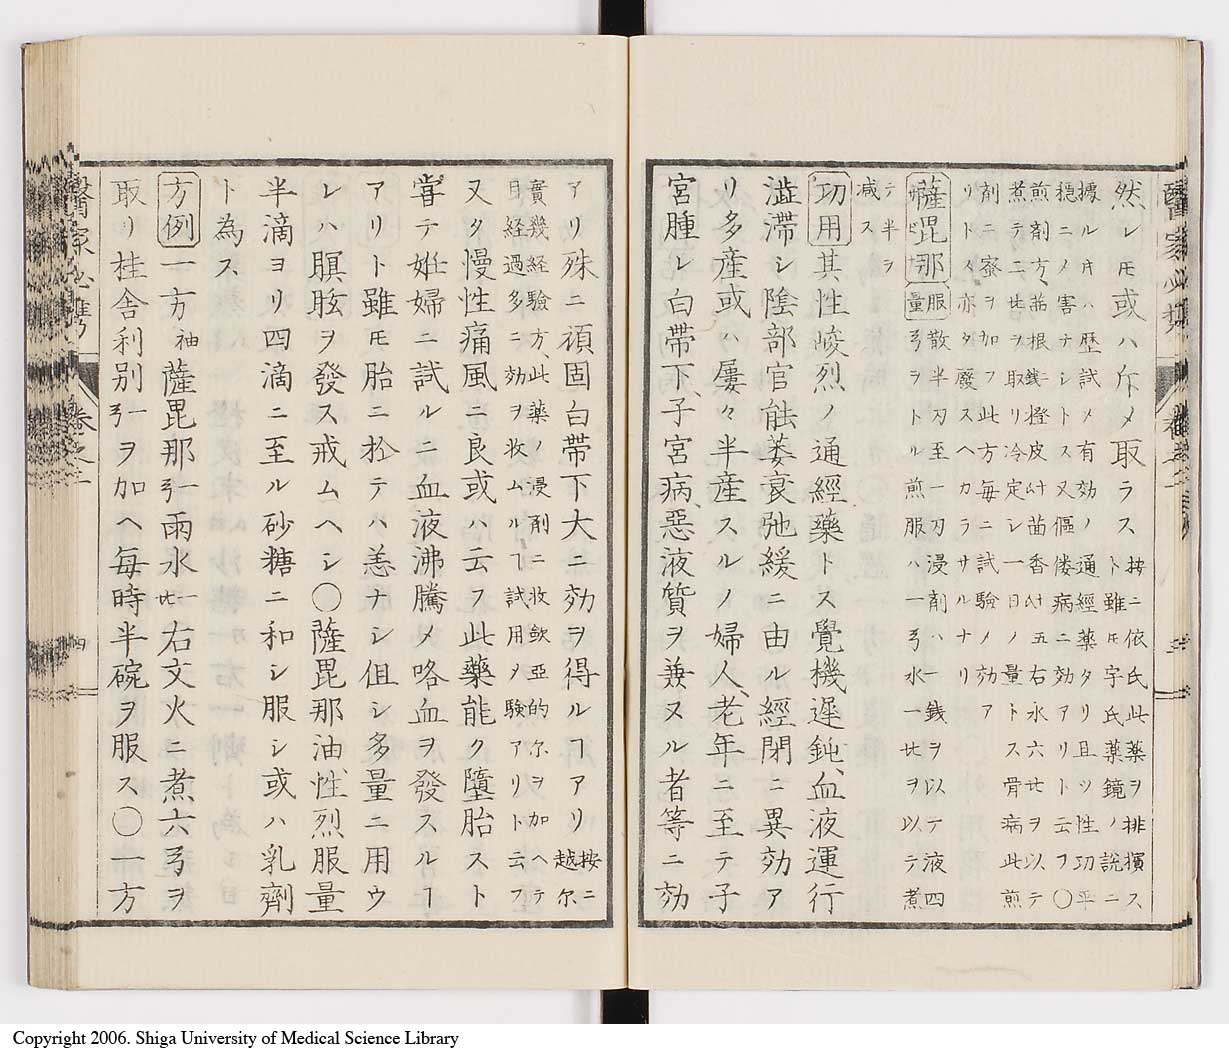 醫家必携 卷之二
然レ𪜈或ハ斥メ取ラス
按ニ依氏此藥ヲ排擯ス
ト雖𪜈宇氏藥鏡ノ説ニ
據ル𪜈ハ歴試メ有効ノ通經藥タリ且ツ性功平
穏ニノ害ナシトス又傴僂病ニ効アリト云フ〇
煎剤方、茜根銭一橙皮茴香五右水六ヲ以テ
煮テ二ヲ取リ冷定シ一日ノ量トス骨病此煎
剤ニ蜜ヲ加フ此方毎ニ試驗ノ効ア
リトス亦タ廢スヘカラサルナリ
薩毘那
服量
散半刃至一刃浸剤ハ一銭ヲ以テ液四
弓ヲトル煎服ハ一弓水一ヲ以テ煮
テ半ヲ
減ス
功用其性峻烈ノ通經藥トス覺機遲鈍、血液運行
澁滞シ陰部官能萎衰弛緩ニ由ル經閉ニ異効ア
リ多産或ハ屢々半産スルノ婦人、老年ニ至テ子
宮腫レ白帶下、子宮病、惡液質ヲ兼ヌル者等ニ効
アリ殊ニ頑固白帶下大ニ効ヲ得ルヿアリ
按ニ
越尔
實幾経驗方、此藥ノ浸剤ニ收斂亞的尔ヲ加ヘテ
日ヲ経過多ニ効ヲ收ムルヿ試用ノ驗アリト云フ
又タ慢性痛風ニ良或ハ云フ此藥能ク墮胎スト
甞テ姙婦ニ試ルニ血液沸騰メ咯血ヲ發スルヿ
アリト雖𪜈胎ニ於テハ恙ナシ但シ多量ニ用ウ
レハ瞑眩ヲ發ス戒ムヘシ〇薩毘那油、性烈服量
半滴ヨリ四滴ニ至ル砂糖ニ和シ服シ或ハ乳劑
ト為ス
方例一方 袖薩毘那一弓雨水一右文火ニ煮六弓ヲ
取リ桂舎利別一弓ヲ加ヘ毎時半碗ヲ服ス〇一方
醫家必携 卷之二 四
Copyright 2006. Shiga University of Medical Science Library